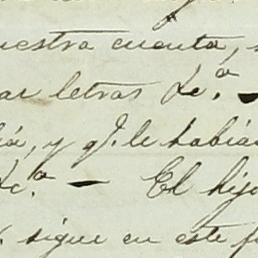 nuestra cuenta,
ar letras &c.ª —
ia, y q.e le habia
&c.ª — El hijo
sigue en este